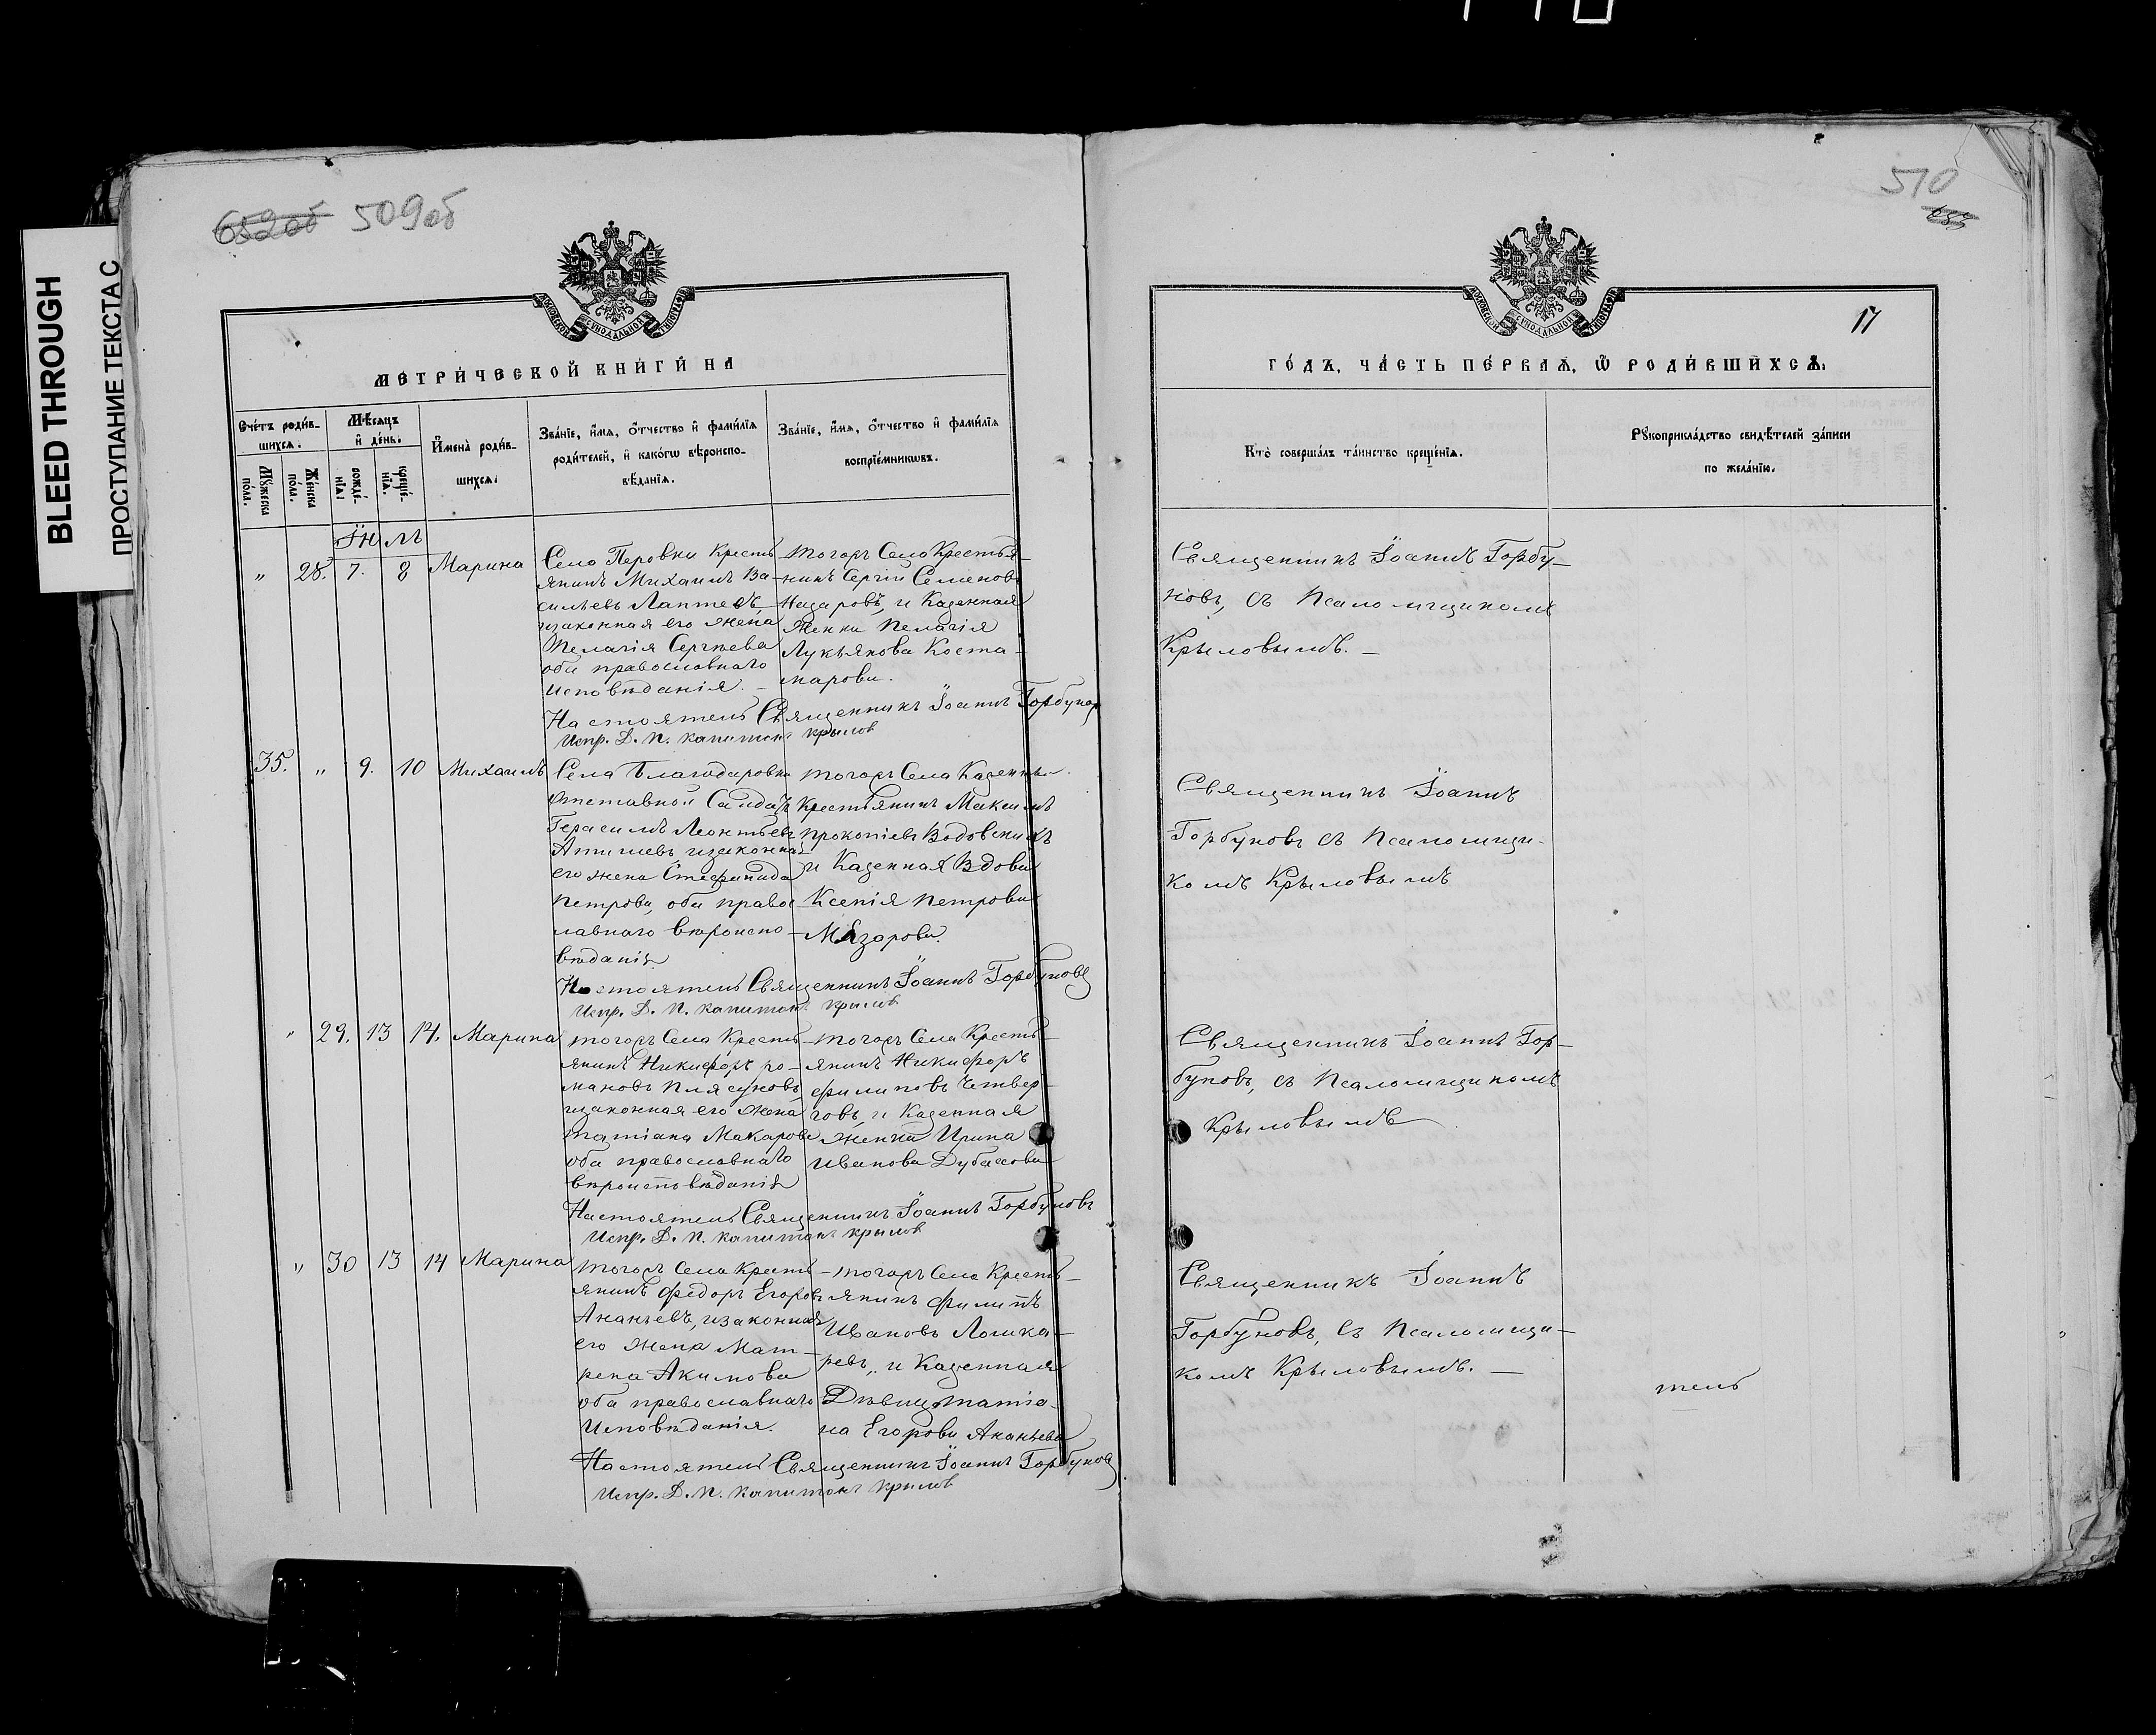 BLEED THROUGH
ПРОСТУПАНИЕ ТЕКСТА С
652об 509об
МЕТРИ́ЧЕСКОЙ КНИ́ГИ НА
Сче́тъ роди́в-
шихся.
Мѣ́сяцъ
и҆ де́нь.
Мꙋ́жеска
по́ла.
Же́нска
по́ла.
рожде́-
нїѧ.
креще́-
нїѧ.
И҆мена̀ роди́в-
шихсѧ.
Зва́нїе, и҆́мѧ, ѻ҆́тчество и҆ фами́лїѧ
роди́телей, и҆ како́гѡ вѣроиспо-
вѣ́данїѧ.
Зва́нїе, и҆́мѧ, ѻ҆́тчество и҆ фами́лїѧ
воспрїе́мникѡвъ.
28. 7. 8 Марина
Село Перовки Кресть
янинъ Михаилъ Ва-
сильевъ Лаптевъ,
изаконная его жена
Пелагія Сергѣева
оба православнаго
исповѣданія. –
тогожъ Село Крестья-
нинъ Сергій Семеновъ
Назаровъ, и Казенная
Женки Пелагія
Лукьянова Коста-
марова.
Настоятель Священникъ Іоаннъ Горбуновъ
Испр. Д. П. Капитонъ Крылов
35. „ 9. 10 Михаилъ
Села Благодаровки
отставной Салдатъ
Герасимъ Леонтьевъ
изаконная
его жена Стефанида
Петрова, оба правос
лавнаго вѣроиспо-
вѣданія
тогожъ Села Казенный
Крестьянинъ Максимъ
Прокопіевъ Водовскихъ
и Казенная Вдова
Ксенія Петрова
Мязорова.
Настоятель Священникъ Іоаннъ Горбуновъ
Испр. Д. П. Капитонъ Крылов
„ 29. 13 14. Марина
тогожъ Села Кресть-
янинъ Никифоръ Ро-
мановъ Плясуновъ,
изаконная его жена
Татіана Макарова
оба православнаго
вѣроисповѣданія
тогожъ Села Кресть-
янинъ Никифоръ
Филиповъ Четвер-
говъ, и Казенная
Женка Ирина
Иванова Дубасова
Настоятель Священникъ Іоаннъ Горбуновъ
Испр. Д. П. Капитонъ Крылов
„ 30 13 14 Марина
тогожъ Села Кресть-
янинъ Федоръ Егоровъ
Ананьевъ, изаконная
его жена Мат-
рена Акимова
оба православнаго
Исповѣданія.
тогожъ Села Кресть-
янинъ Филипъ
Ивановъ Лошка-
ревъ, и Казенная
Дѣвица Татіа-
на Егорова Ананьева
Настоятель Священникъ Іоаннъ Горбуновъ
Испр. Д. П. Капитонъ Крылов
510
17
ГО́ДЪ, ЧА́СТЬ ПЕ́РВАѦ, Ѡ҆ РОДИ́ВШИХСѦ.
Кто̀ соверша́лъ та́инство креще́нїѧ.
Рꙋкоприкла́дство свидѣ́телей за́писи
по жела́нїю.
Священникъ Іоаннъ Горбу-
новъ, съ Псаломщикомъ
Крыловымъ. –
Священникъ Іоаннъ
Горбуновъ съ Псаломщи-
комъ Крыловымъ
Священникъ Іоаннъ Гор-
буновъ, съ Псаломщикомъ
Крыловымъ
Священникъ Іоаннъ
Горбуновъ, съ Псаломщи-
комъ Крыловымъ. –
тель